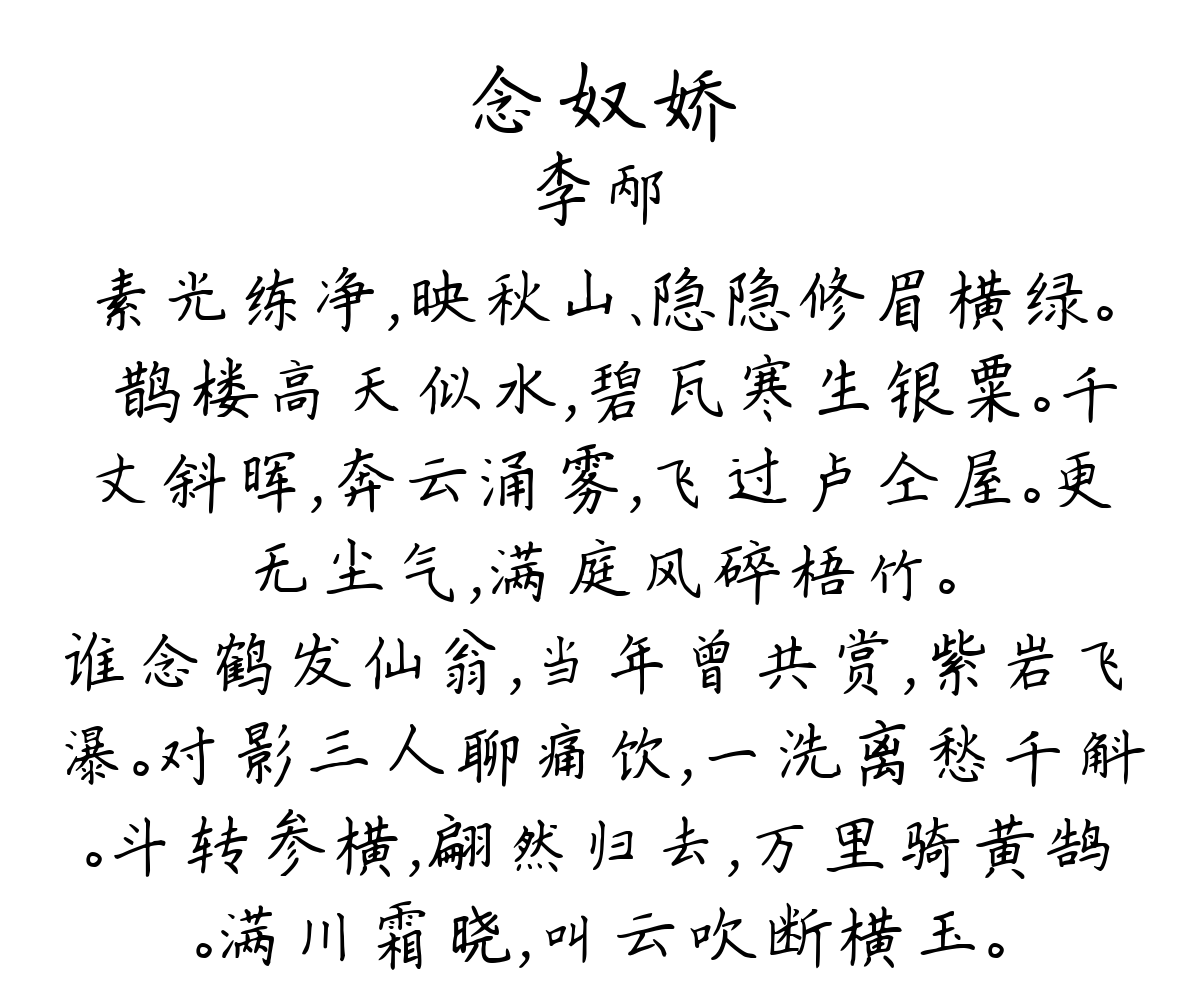 念奴娇
李邴
素光练净,映秋山、隐隐修眉横绿。
鹊楼高天似水,碧瓦寒生银粟。千
丈斜晖,奔云涌雾,飞过卢仝屋。更
无尘气,满庭风碎梧竹。
谁念鹤发仙翁,当年曾共赏,紫岩飞
瀑。对影三人聊痛饮,一洗离愁千斛
。斗转参横,翩然归去,万里骑黄鹄
。满川霜晓,叫云吹断横玉。